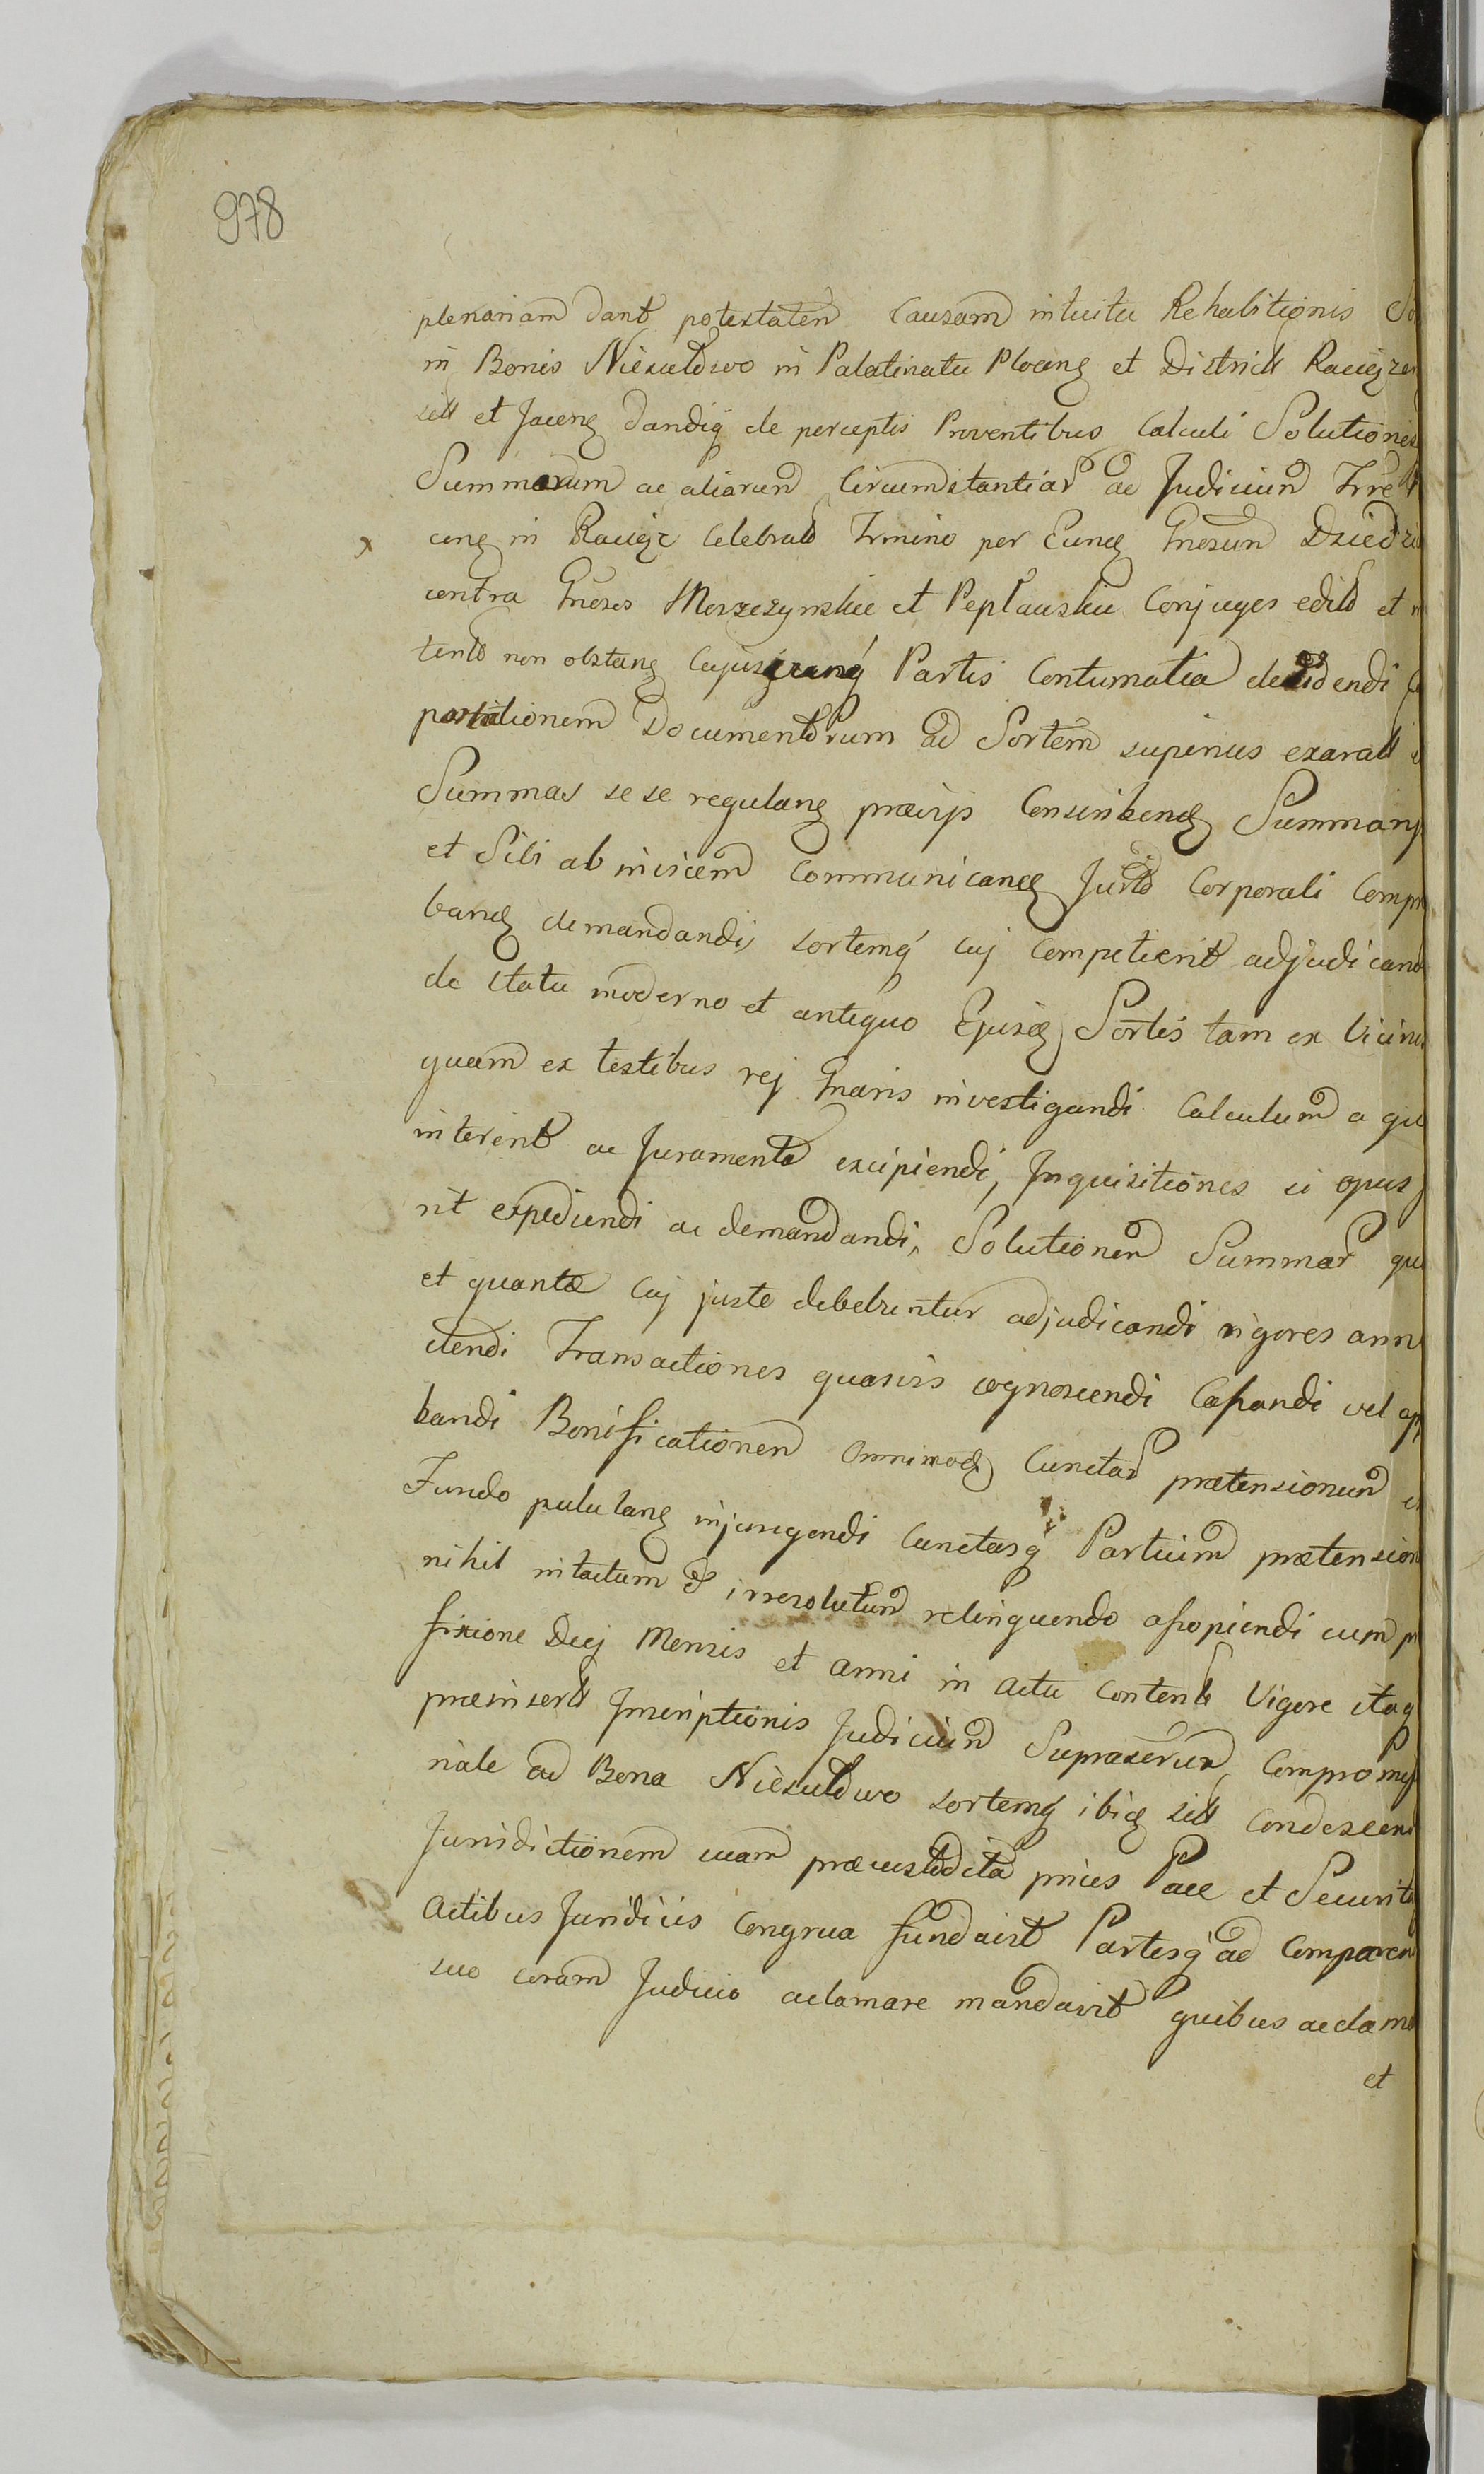 978
plenariam dant potestatem Causam intuitu Rehabitionis
in Bonis Niesułowo in Palatinatu Płocen et District Raciąż
sitt et Jacen dandiq de perceptis Proventibus Calculi Solutionis
Summarum ac aliarum Circumstantiar ad Judicium Trrel
cen in Raciąż Celebrato Trmino per Eund Gnosum
x
contra Gnosos Morzeszynskie et Pepłauskie Conjuges edito et
tento non obstan Cujuscunq Partis Contumatia decidendi
portationem Documentorum ad Sortem superius exaratt
Summas se se regulan prævijs Conscriben Summarij
et Sibi ab invicem Communicand Jurto Corporali Comp
band demandandi, sortemq cuj competierit adjudicand
de statu moderno et antiquo Ejusd Sortis tam ex Vicinis
quam ex testibus rej gnaris investigandi Calculum a qu
intererit ac Juramenta excipiendi, Inquisitiones si opus
rit expediendi ac demandandi, Solutionem Summar qu
et quantæ cuj juste debebuntur adjudicandi rigores ann
ctendi Transactiones quasvis cognoscendi Cassandi vel ap
bandi Bonificationem omnimod Cunctar prætensionum
Fundo pululan injungendi Cunctasq Partium prætension
nihil intactum et irresolutum relinquendo assopiendi cum
fixione Diej Mensis et Anni in actu Contento Vigore itaq
præinsertt Inscriptionis Judicium Suprascrum Compromiss
riale ad Bona Niesułowo sortemq ibid sitt condescend
Jurisdictionem suam præcustodita prius Pace et Securita
actibus Juridicis Congrua fundavit Partesq ad Comparen
suo coram Judicio aclamare mandavit quibus aclama
et